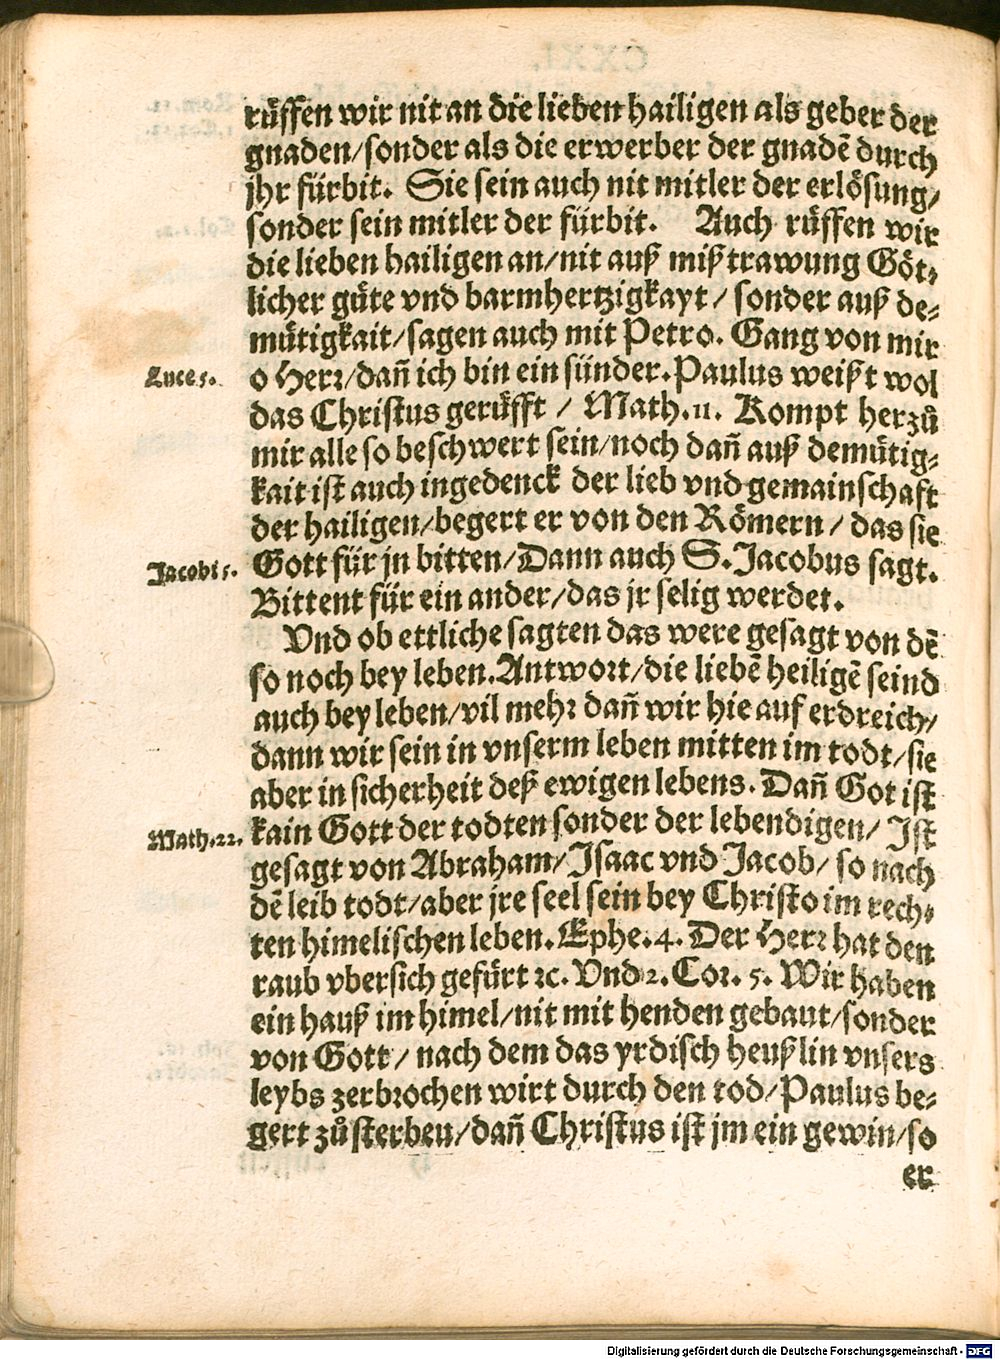 růffen wir nit an die lieben hailigen als geber der
gnaden/sonder als die erwerber der gnadẽ durch
jhr fürbit. Sie sein auch nit mitler der erlösung/
sonder sein mitler der fürbit. Auch růffen wir
die lieben hailigen an/nit auß mißtrawung Göt-
licher güte vnd barmhertzigkayt / sonder auß de-
mütigkait/sagen auch mit Petro. Gang von mir
Luce 5.
o Herr/dañ ich bin ein sünder. Paulus weißt wol
das Christus gerüfft / Math. 11. Kompt herzů
mir alle so beschwert sein/noch dañ auß demütig-
kait ist auch ingedenck der lieb vnd gemainschaft
der hailigen/begert er von den Römern / das sie
Jacobi 5.
Gott für jn bitten/Dann auch S. Jacobus sagt.
Bittent für ein ander/das jr selig werdet.
Vnd ob ettliche sagten das were gesagt von dẽ
so noch bey leben. Antwort/die liebẽ heiligẽ seind
auch bey leben/vil mehr dañ wir hie auf erdreich/
dann wir sein in vnserm leben mitten im todt/sie
aber in sicherheit deß ewigen lebens. Dañ Got ist
Math. 22.
kain Gott der todten sonder der lebendigen/ Ist
gesagt von Abraham/Isaac vnd Jacob/ so nach
dẽ leib todt/aber jre seel sein bey Christo im rech-
ten himelischen leben. Ephe. 4. Der Herr hat den
raub vbersich gefürt ꝛc. Vnd 2. Cor. 5. Wir haben
ein hauß im himel/nit mit henden gebaut/sonder
von Gott / nach dem das yrdisch heußlin vnsers
leybs zerbrochen wirt durch den tod/Paulus be-
gert zů sterben/dañ Christus ist jm ein gewin/so
er
Digitalisierung gefördert durch die Deutsche Forschungsgemeinschaft - DFG